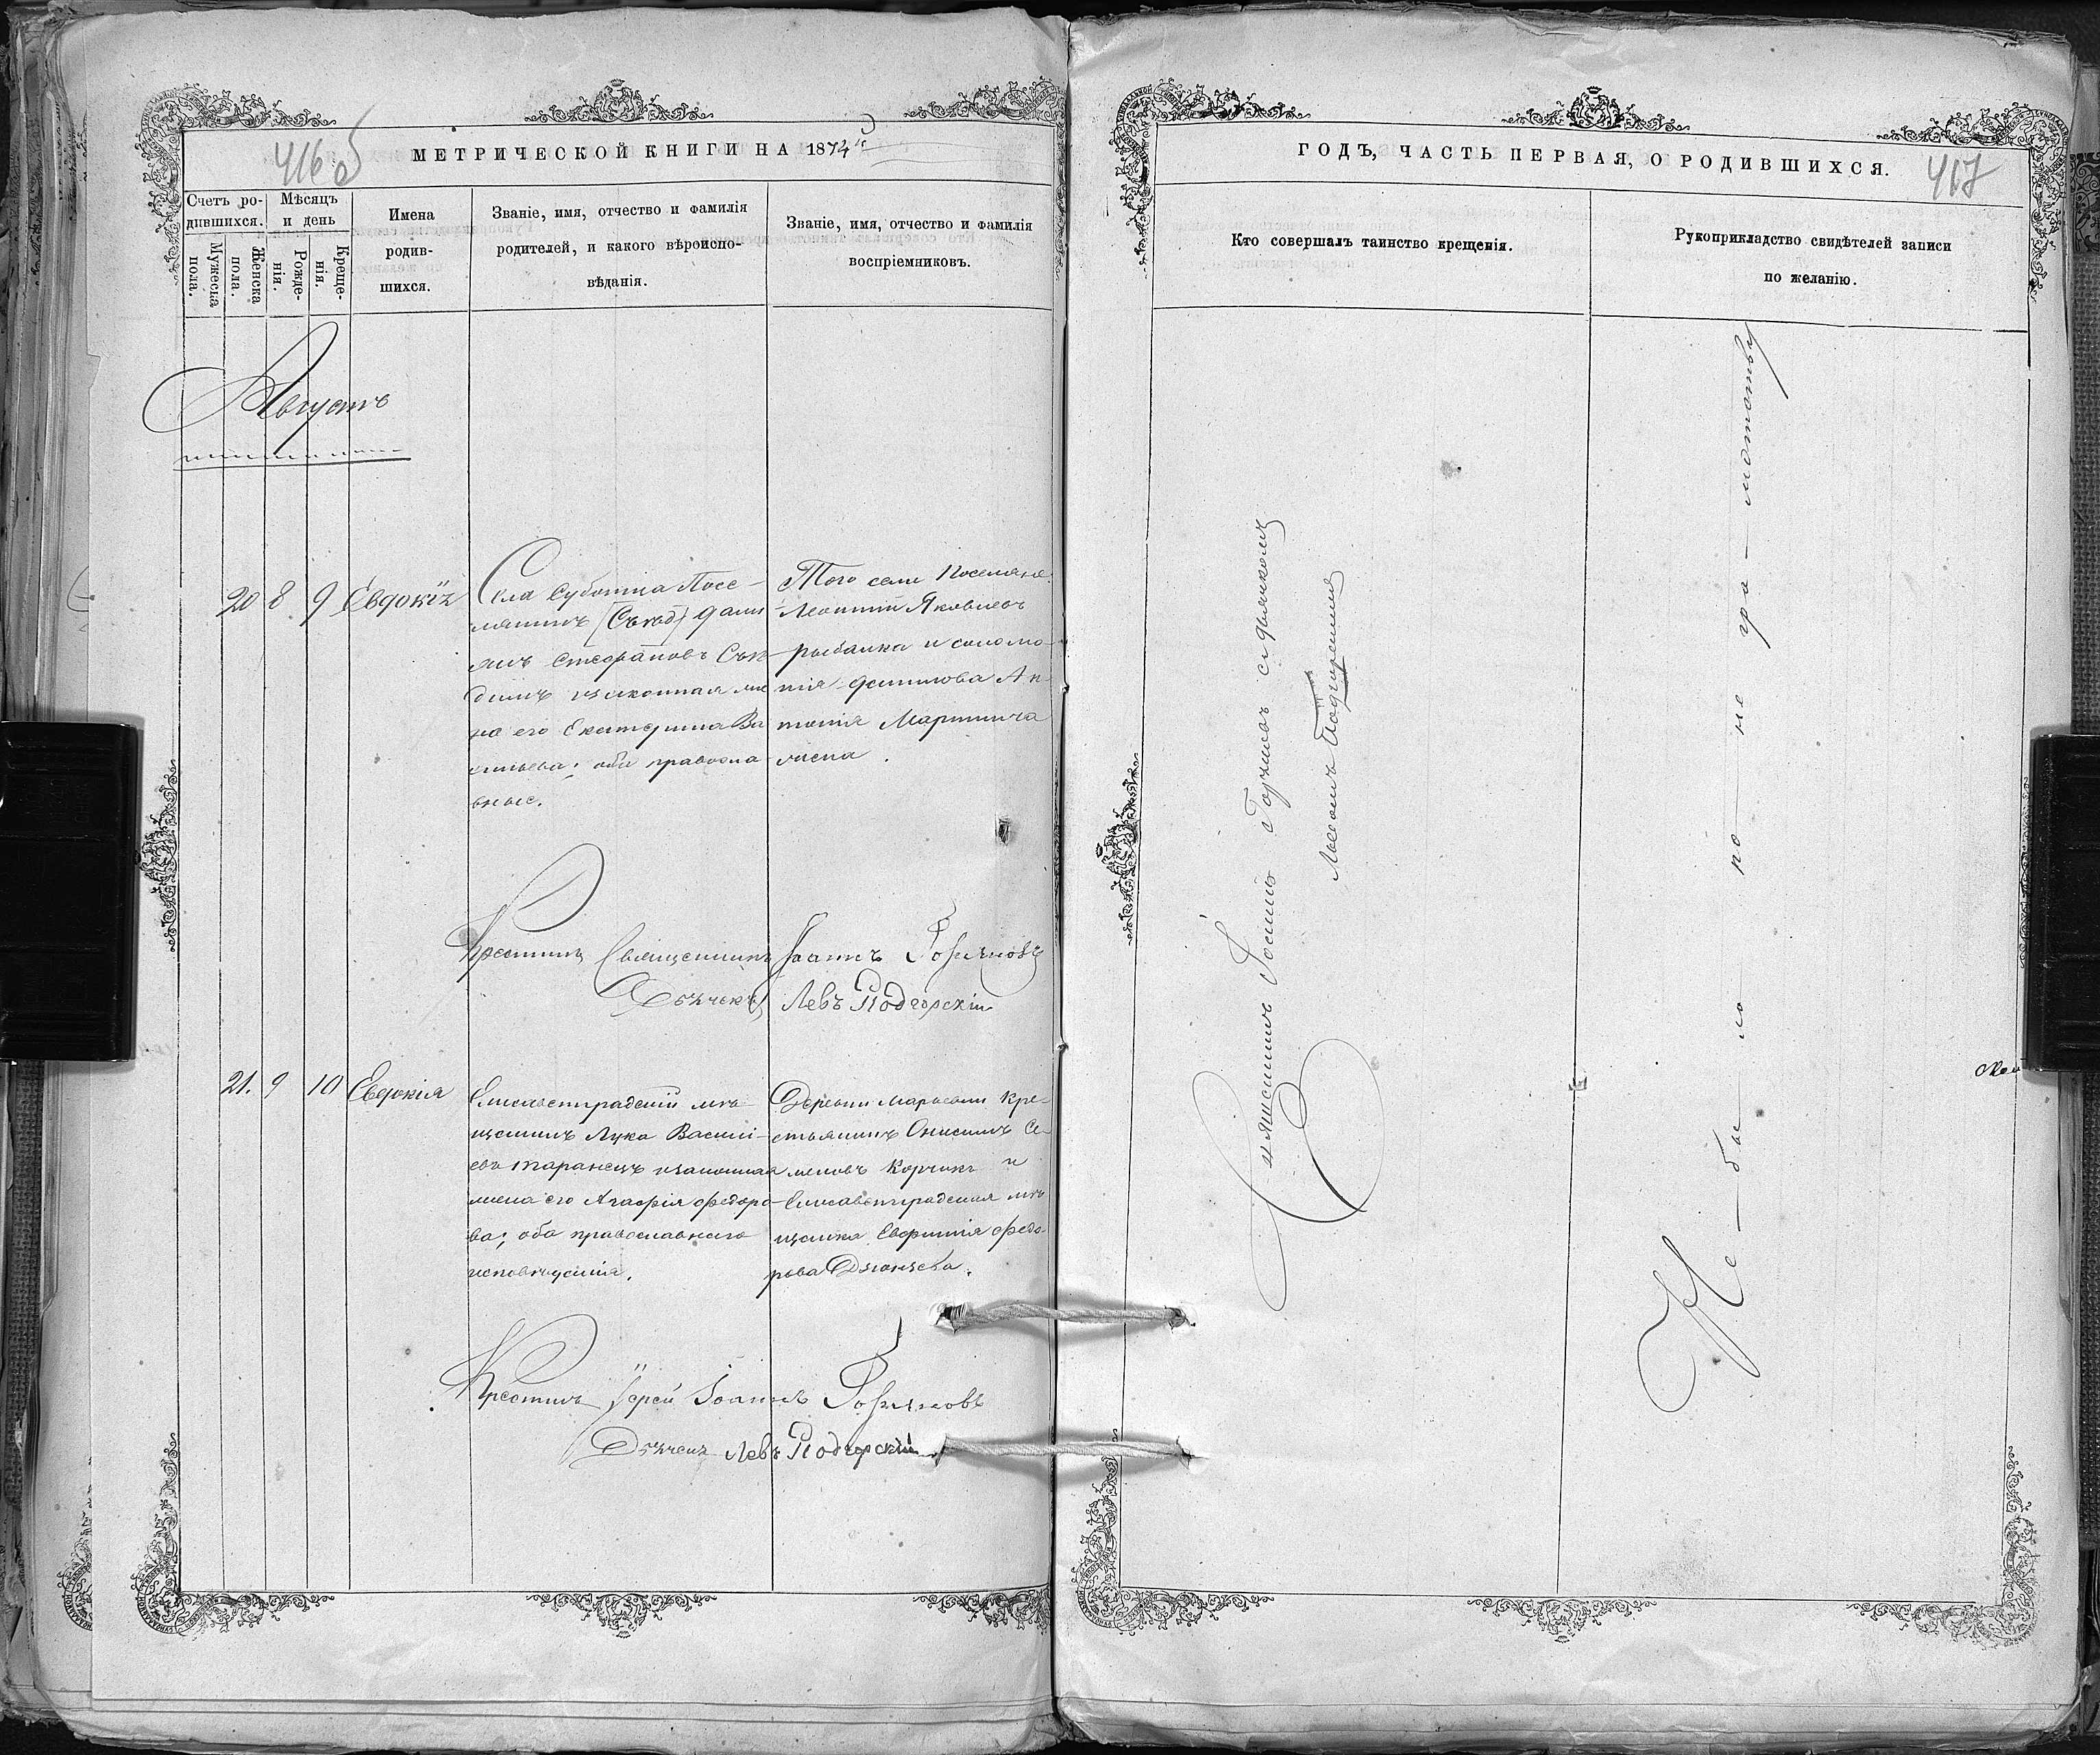 416 об
МЕТРИЧЕСКОЙ КНИГИ НА 1874й
Счетъ ро-
дившихся.
Мужеска
пола.
Женска
пола.
Мѣсяцъ
и день
Рожде-
нія.
Креще-
нія.
Имена
родив-
шихся.
Званіе, имя, отчество и фамилія
родителей, и какого вѣроиспо-
вѣданія.
Званіе, имя, отчество и фамилія
воспріемниковъ.
Августъ
20 8 9 Евдокія
Села Суботца Посе-
лянинъ
Стефановъ
законная же
на его Екатерина Ва
сильева; оба правосла
вные.
Того села Поселяне:
Леонтій Яковлевъ
рыбалка и соломо-
нія Данилова Ан
тонія Мартинича
жена.
Крестилъ Священникъ Іоаннъ
Дьячекъ Левъ Подгорскій
21. 9 10 Евдокія
Елисаветградскій мѣ-
щанинъ Лука Васильи-
евъ Таранецъ и законная
жена его Агафія Федоро-
ва; оба православнаго
исповѣданія.
Деревни Марьевки Кре-
стьянинъ Онисимъ Се-
меновъ Корчикъ и
Елисаветградская мѣ
щанка Евфимія Федо-
рова
Крестилъ Іерей Іоаннъ
Дьячекъ Левъ Подгорскій
ГОДЪ, ЧАСТЬ ПЕРВАЯ, О РОДИВШИХСЯ.
417
Кто совершалъ таинство крещенія.
Рукоприкладство свидѣтелей записи
по желанію.
Священникъ Іоаннъ съ дьячкомъ
Львомъ Подгорскимъ
Не — бы — ло по — не гра — мотству